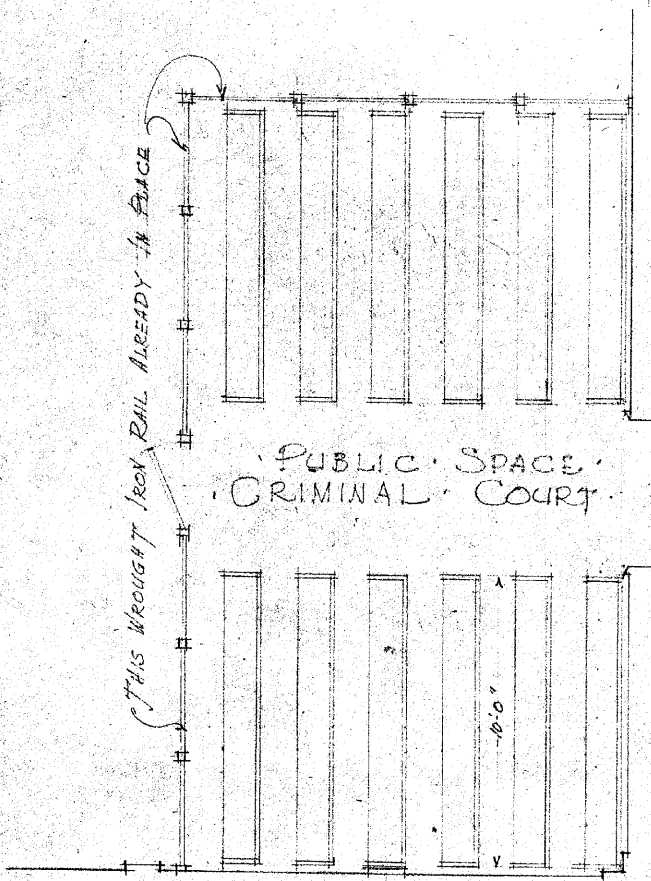 THIS WROUGHT IRON RAIL ALREADY IN PLACE
· PUBLIC · SPACE ·
· CRIMINAL · COURT ·
10'-0"